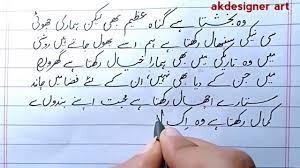 akdesigner art
وہ بخشتا ہے گناہ عظیم بھی لیکن ہماری چھوٹی
سی نیکی سنبھال رکھتا ہے ہم اسے بھول جاتے ہیں روشنی
میں وہ تاریکی میں بھی ہمارا خیال رکھتا ہے گھروں
میں جس کے دیا بھی نہیں ان کے لئے فضا میں چاند
ستارے اچھال رکھتا ہے محبت اپنے بندوں سے
کمال رکھتا ہے وہ اک